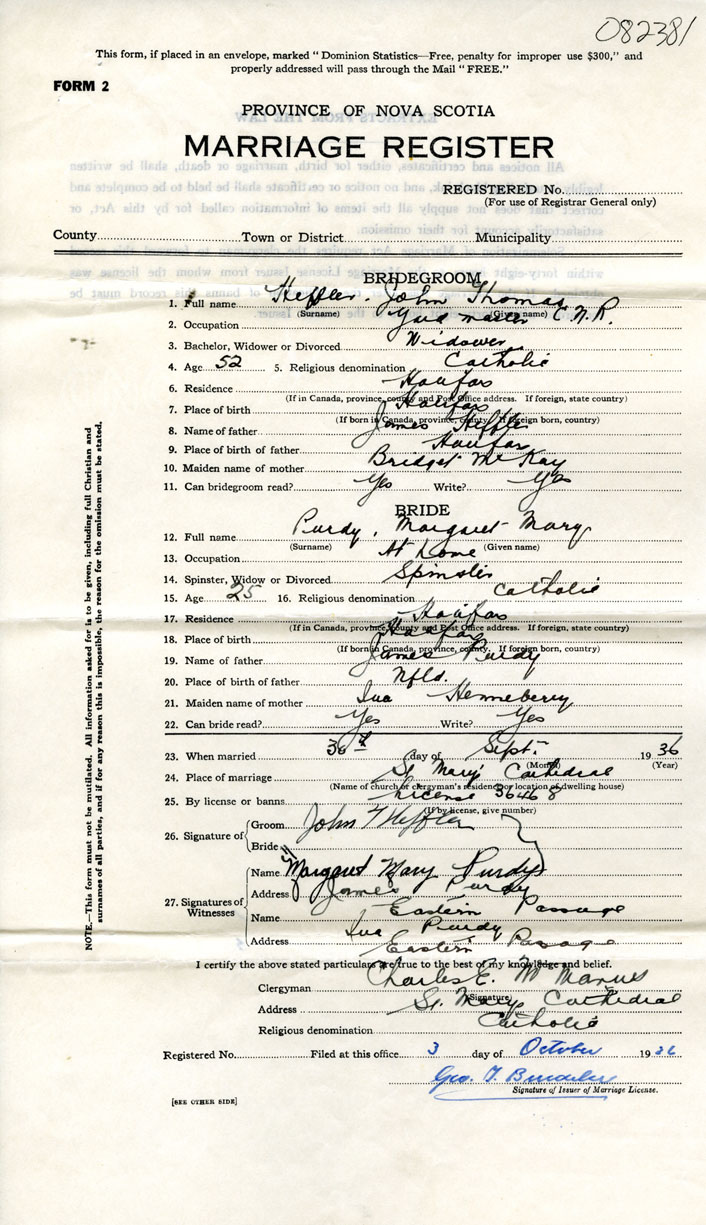 082381
This form, if placed in an envelope, marked "Dominion Statistics—Free, penalty for improper use $300," and
properly addressed will pass through the Mail "FREE."
FORM 2
PROVINCE OF NOVA SCOTIA
MARRIAGE REGISTER
REGISTERED No.
(For use of Registrar General only)
County Town or District Municipality
BRIDEGROOM
1. Full name Heffler, John Thomas
(Surname) (Given name)
2. Occupation Yard master C.N.R.
3. Bachelor, Widower or Divorced Widower
4. Age 52 5. Religious denomination Catholic
6. Residence Halifax
(If in Canada, province, county and Post Office address. If foreign, state country)
7. Place of birth Halifax
(If born in Canada, province, county. If foreign born, country)
8. Name of father James Heffler
9. Place of birth of father Halifax
10. Maiden name of mother Bridget McKay
11. Can bridegroom read? Yes Write? Yes
BRIDE
12. Full name Purdy, Margaret Mary
(Surname) (Given name)
13. Occupation At home
14. Spinster, Widow or Divorced Spinster
15. Age 25 16. Religious denomination Catholic
17. Residence Halifax
(If in Canada, province, county and Post Office address. If foreign, state country)
18. Place of birth Halifax
(If born in Canada, province, county. If foreign born, country)
19. Name of father James Purdy
20. Place of birth of father Nfld.
21. Maiden name of mother Iva Henneberry
22. Can bride read? Yes Write? Yes
23. When married 30th day of Sept. 1936
(Month) (Year)
24. Place of marriage St Mary's Cathedral
(Name of church or clergyman's residence or location of dwelling house)
25. By license or banns License 36468
(If by license, give number)
26. Signature of Groom John T Heffler
Bride
Margaret Mary Purdy
27. Signatures of Witnesses
Name James Purdy
Address Eastern Passage
Name Iva Purdy
Address Eastern Passage
I certify the above stated particulars are true to the best of my knowledge and belief.
Clergyman Charles E. McManus
(Signature)
Address St. Mary Cathedral
Religious denomination Catholic
Registered No. Filed at this office 3 day of October 1936
Geo. T.
Signature of Issuer of Marriage License.
[SEE OTHER SIDE]
NOTE.—This form must not be mutilated. All information asked for is to be given, including full Christian and
surnames of all parties, and if for any reason this is impossible, the reason for the omission must be stated.